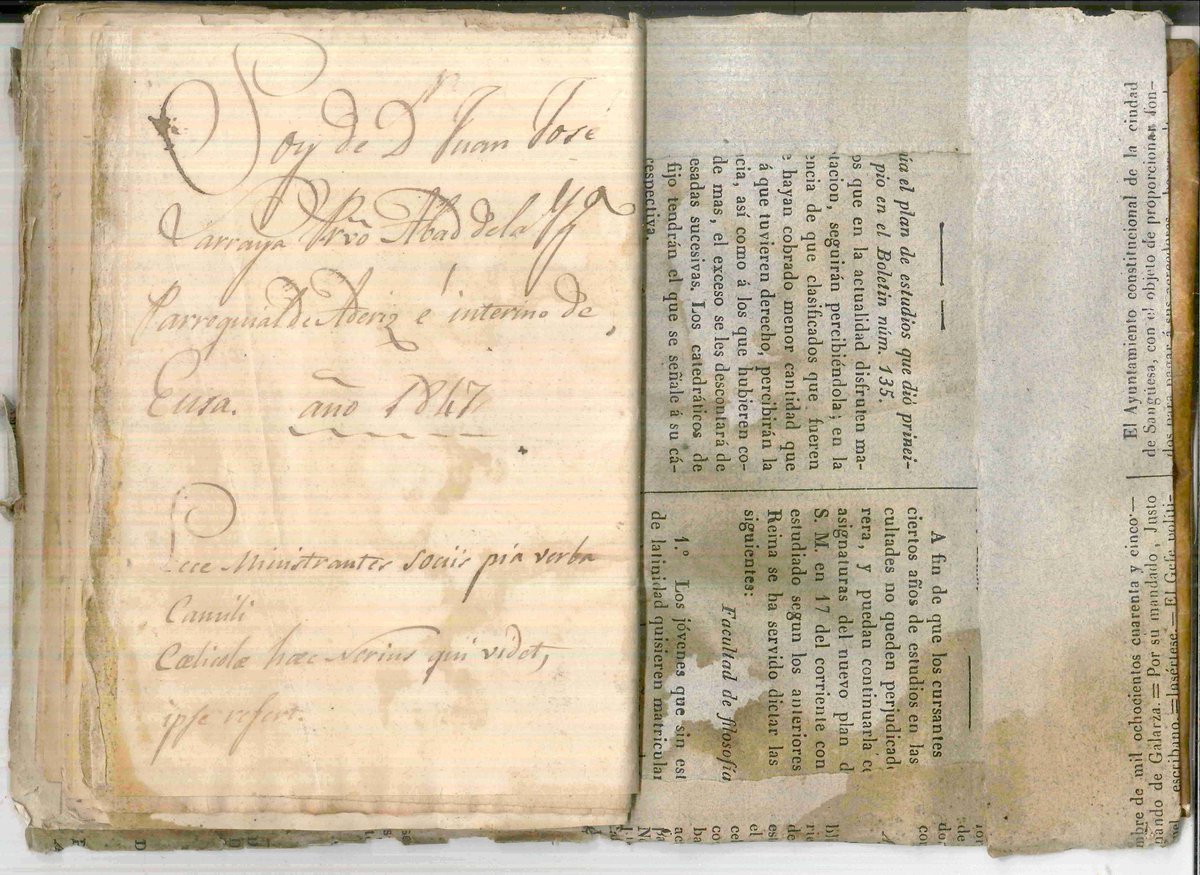 Soy de Dⁿ Juan José
Larraya Prvõ Abad de la Ygª
Parroquial de Aderiz e interino de
Eusa. año 1847
Ecce Ministrantes sociis pia verba
Camili
Cœlicolæ hæc Nerius qui videt,
ipse refert.
úa el plan de estudios que dió princi-
pio en el Boletin núm. 135.
os que en la actualidad disfruten ma-
tacion, seguirán percibiéndola; en la
encia de que clasificados que fueren
e hayan cobrado menor cantidad que
á que tuvieren derecho, percibirán la
cia, así como á los que hubieren co-
de mas, el exceso se les descontará de
esadas sucesivas. Los catedráticos de
fijo tendrán el que se señale á su cá-
respectiva.
A fin de que los cursantes
ciertos años de estudios en las
cultades no queden perjudicad
rera, y puedan continuarla c
asignaturas del nuevo plan d
S. M. en 17 del corriente con
estudiado segun los anteriores
Reina se ha servido dictar las
siguientes:
Facultad de filosofía
1.º Los jóvenes que sin est
de latinidad quisieren matricular
El Ayuntamiento constitucional de la ciudad
de Sangüesa, con el objeto de proporcionar fon-
dos para pagar á sus
mbre de mil ochocientos cuarenta y cinco.—
nando de Galarza.=Por su mandado, Justo
escribano.=Insértese.—El Gefe políti-